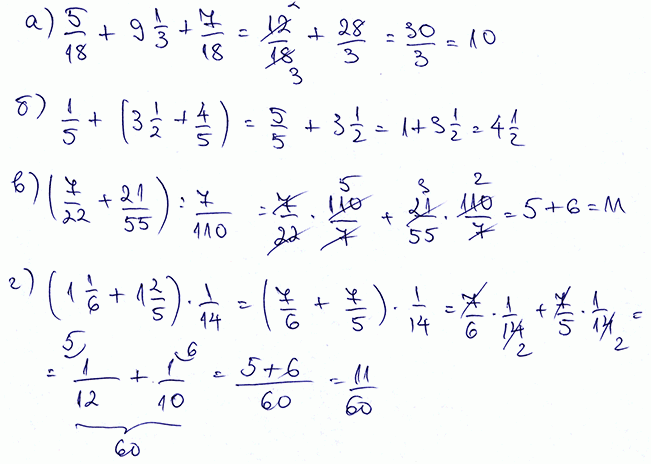 а) 5/18 + 9 1/3 + 7/18 = 12/18 2 3 + 28/3 = 30/3 = 10
б) 1/5 + (3 1/2 + 4/5) = 5/5 + 3 1/2 = 1 + 3 1/2 = 4 1/2
в) (7/22 + 21/55) : 7/110 = 7/22 · 110/7 5 + 21/55 3 · 110/7 2 = 5 + 6 = 11
г) (1 1/6 + 1 2/5) · 1/14 = (7/6 + 7/5) · 1/14 = 7/6 · 1/14 2 + 7/5 · 1/14 2 =
= 5 1/12 + 1/10 6 = 5+6/60 = 11/60
60